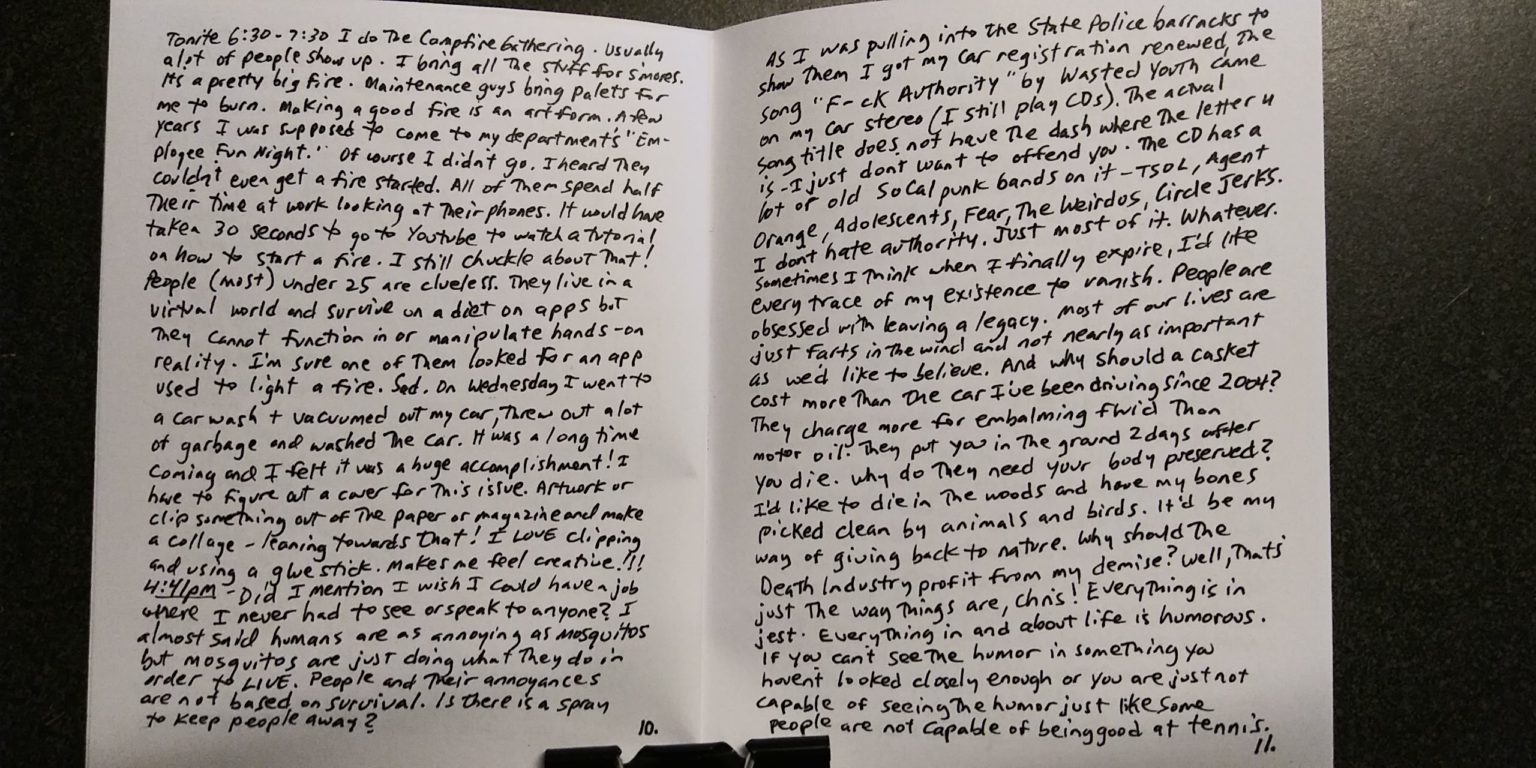 Tonite 6:30-7:30 I do The Campfire Gathering. Usually
alot of people show up. I bring all The stuff for s'mores.
It's a pretty big fire. Maintenance guys bring palets for
me to burn. Making a good fire is an art form. A few
years I was supposed to come to my department's "Em-
ployee Fun Night." Of course I didn't go. I heard They
couldn't even get a fire started. All of Them spend half
Their time at work looking at Their phones. It would have
taken 30 seconds to go to Youtube to watch a tutorial
on how to start a fire. I still chuckle about That!
People (most) under 25 are clueless. They live in a
virtual world and survive on a diet on apps but
They cannot function in or manipulate hands-on
reality. I'm sure one of Them looked for an app
used to light a fire. Sad. On Wednesday I went to
a car wash + vacuumed out my car, Threw out alot
of garbage and washed The car. It was a long time
coming and I felt it was a huge accomplishment! I
have to figure out a cover for This issue. Artwork or
clip something out of The paper or magazine and make
a collage - leaning towards That! I LOVE clipping
and using a glue stick. Makes me feel creative!!!
4:41pm - Did I mention I wish I could have a job
where I never had to see or speak to anyone? I
almost said humans are as annoying as mosquitos
but mosquitos are just doing what They do in
order to LIVE. People and Their annoyances
are not based on survival. Is there is a spray
to keep people away?
10.
As I was pulling into The State Police barracks to
show them I got my car registration renewed, The
song "F-ck Authority" by Wasted Youth came
on my car stereo (I still play CDs). The actual
song title does not have The dash where The letter u
is - I just dont want to offend you. The CD has a
lot or old SoCal punk bands on it - TSOL, Agent
Orange, Adolescents, Fear, The Weirdos, Circle Jerks.
I dont hate authority. Just most of it. Whatever.
Sometimes I Think when I finally expire, I'd like
every trace of my existence to vanish. People are
obsessed with leaving a legacy. Most of our lives are
just farts in The wind and not nearly as important
as we'd like to believe. And why should a casket
cost more Than The car I've been driving since 2004?
They charge more for embalming fluid Than
motor oil. They put you in The ground 2 days after
you die. Why do They need your body preserved?
I'd like to die in The woods and have my bones
picked clean by animals and birds. It'd be my
way of giving back to nature. Why should The
Death Industry profit from my demise? Well, Thats
just The way Things are, Chris! Everything is in
jest. Everything in and about life is humorous.
If you can't see The humor in something you
havent looked closely enough or you are just not
capable of seeing The humor just like some
people are not capable of being good at tennis.
11.